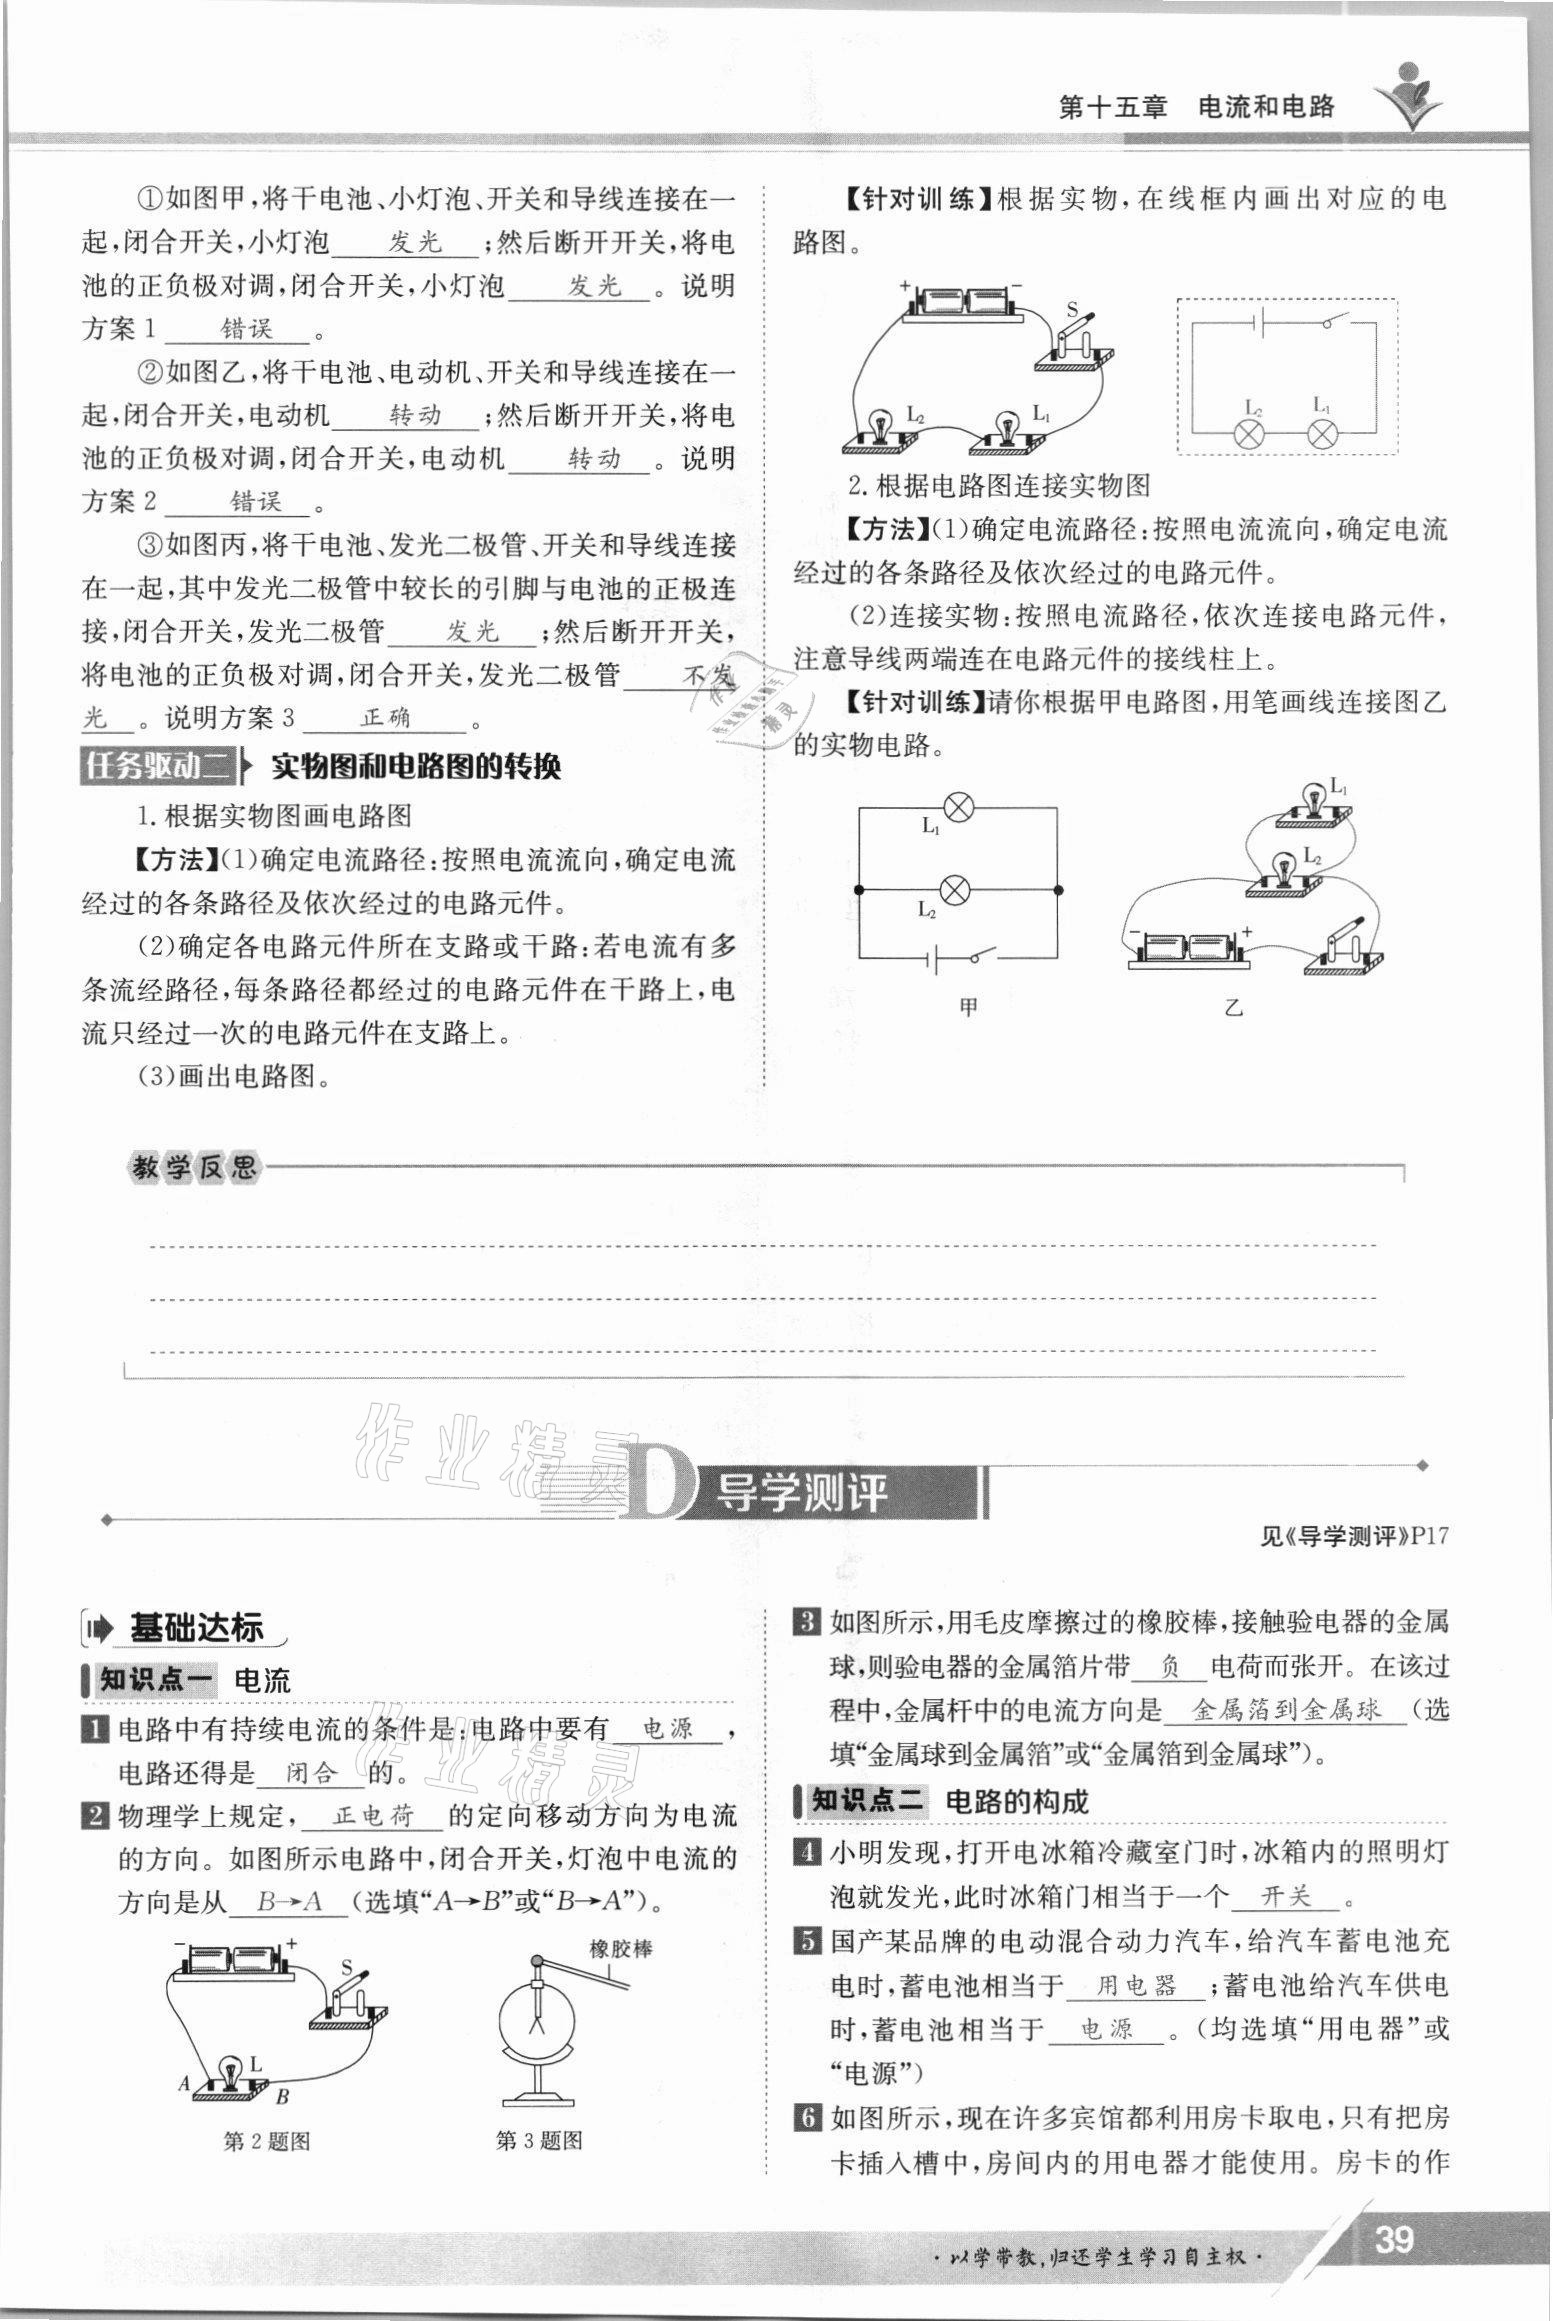 第十五章 电流和电路
①如图甲,将干电池、小灯泡、开关和导线连接在一
起,闭合开关,小灯泡 发光 ;然后断开开关,将电
池的正负极对调,闭合开关,小灯泡 发光 。说明
方案1 错误 。
②如图乙,将干电池、电动机、开关和导线连接在一
起,闭合开关,电动机 转动 ;然后断开开关,将电
池的正负极对调,闭合开关,电动机 转动 。说明
方案2 错误 。
③如图丙,将干电池、发光二极管、开关和导线连接
在一起,其中发光二极管中较长的引脚与电池的正极连
接,闭合开关,发光二极管 发光 ;然后断开开关,
将电池的正负极对调,闭合开关,发光二极管 不发
光 。说明方案3 正确 。
任务驱动二 实物图和电路图的转换
1.根据实物图画电路图
【方法】(1)确定电流路径:按照电流流向,确定电流
经过的各条路径及依次经过的电路元件。
(2)确定各电路元件所在支路或干路:若电流有多
条流经路径,每条路径都经过的电路元件在干路上,电
流只经过一次的电路元件在支路上。
(3)画出电路图。
【针对训练】根据实物,在线框内画出对应的电
路图。
+ − S L₂ L₁
L₂ L₁
2.根据电路图连接实物图
【方法】(1)确定电流路径:按照电流流向,确定电流
经过的各条路径及依次经过的电路元件。
(2)连接实物:按照电流路径,依次连接电路元件,
注意导线两端连在电路元件的接线柱上。
【针对训练】请你根据甲电路图,用笔画线连接图乙
的实物电路。
L₁
L₂
甲
L₁
L₂
− +
乙
教学反思
D 导学测评
见《导学测评》P17
基础达标
知识点一 电流
1 电路中有持续电流的条件是:电路中要有 电源 ,
电路还得是 闭合 的。
2 物理学上规定, 正电荷 的定向移动方向为电流
的方向。如图所示电路中,闭合开关,灯泡中电流的
方向是从 B→A (选填“A→B”或“B→A”)。
− + S
L
A B
第2题图
橡胶棒
第3题图
3 如图所示,用毛皮摩擦过的橡胶棒,接触验电器的金属
球,则验电器的金属箔片带 负 电荷而张开。在该过
程中,金属杆中的电流方向是 金属箔到金属球 (选
填“金属球到金属箔”或“金属箔到金属球”)。
知识点二 电路的构成
4 小明发现,打开电冰箱冷藏室门时,冰箱内的照明灯
泡就发光,此时冰箱门相当于一个 开关 。
5 国产某品牌的电动混合动力汽车,给汽车蓄电池充
电时,蓄电池相当于 用电器 ;蓄电池给汽车供电
时,蓄电池相当于 电源 。(均选填“用电器”或
“电源”)
6 如图所示,现在许多宾馆都利用房卡取电,只有把房
卡插入槽中,房间内的用电器才能使用。房卡的作
·以学带教,归还学生学习自主权·
39
作业精灵
作业精灵